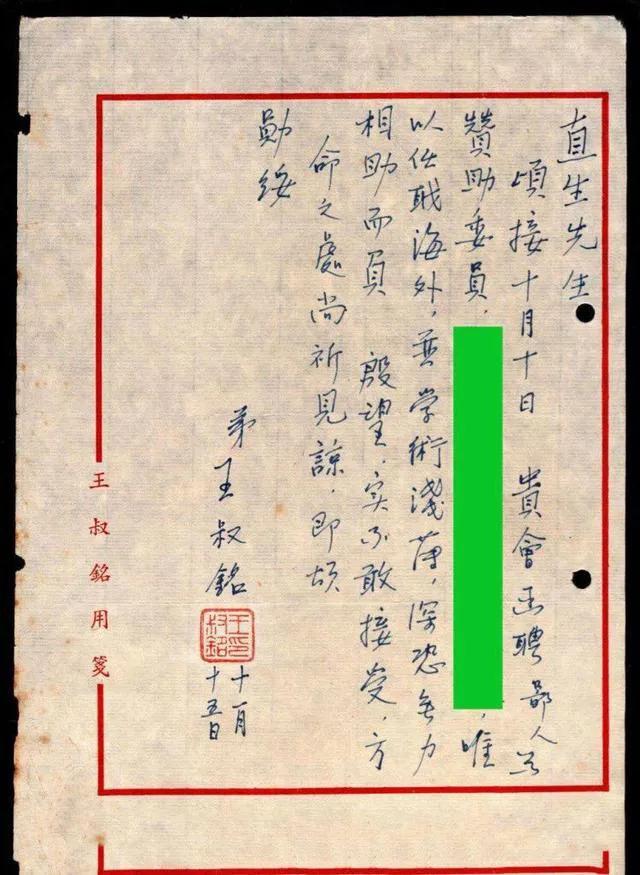 直生先生
頃接十月十日 貴會函聘鄙人為
贊助委員，，唯
以任職海外，並学術淺薄，深恐無力
相助而負 殷望，实不敢接受，方
命之處尚祈見諒，即頌
勛綏
弟王叔銘
王印叔銘
十一月
十五日
王叔銘用箋